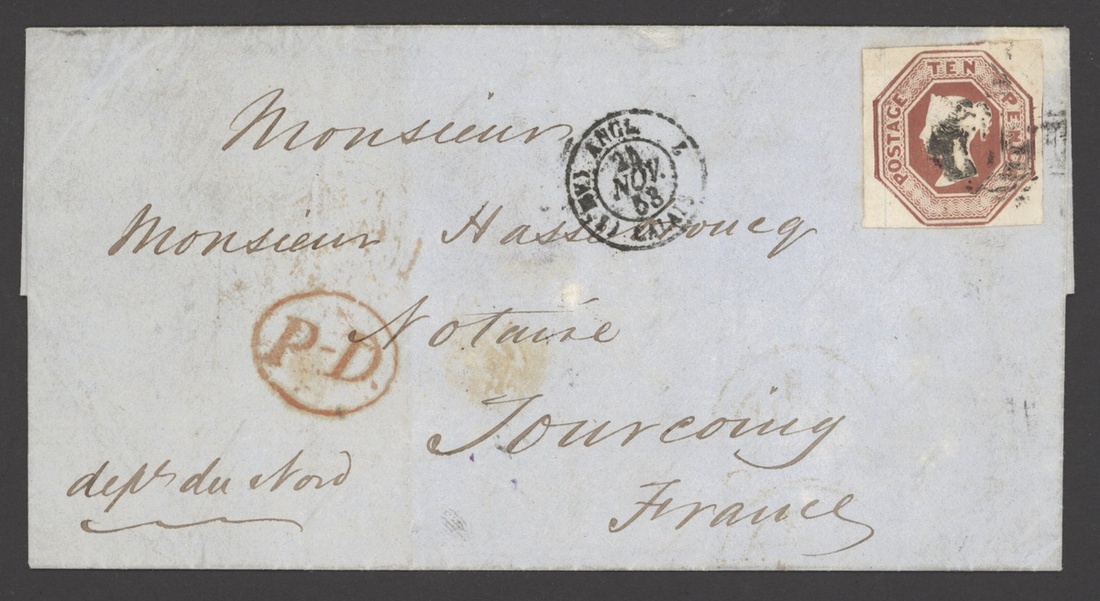 POSTAGE TEN PENCE
Monsieur
ANGL.
24
NOV.
53
CALAIS
Monsieur
P-D.
Notaire
Tourcoing
dept du Nord
France